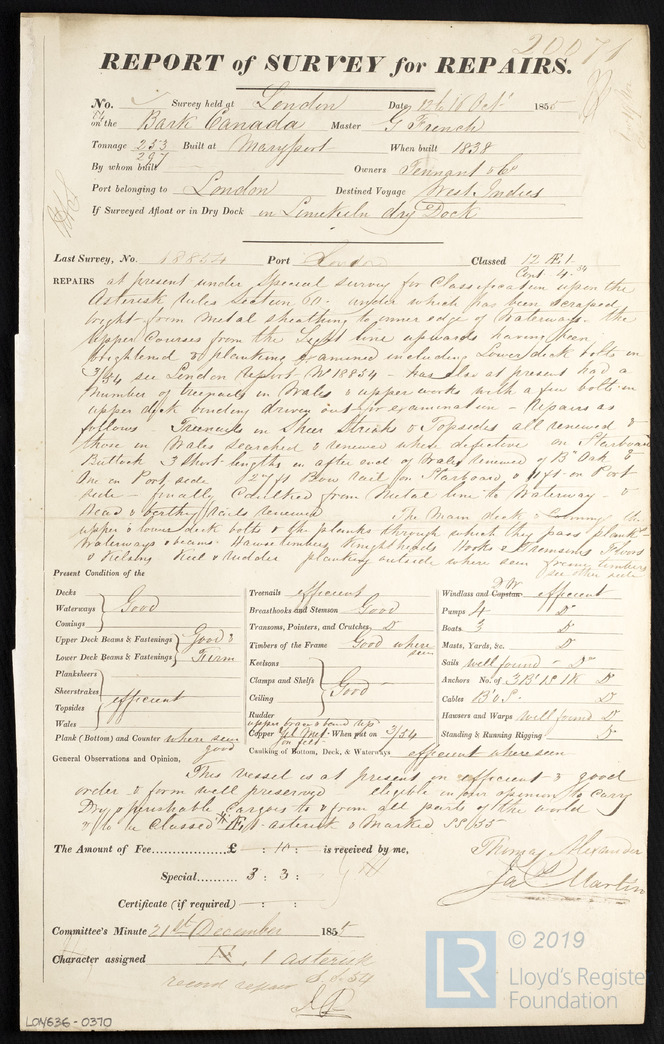 20071
REPORT of SURVEY for REPAIRS.
No. Survey held at London Date, 12 to Oct 1855
on the Bark Canada Master G French
Tonnage 253 Built at Maryport When built 1838
297
By whom built Owners Tennant & Co
Port belonging to London Destined Voyage West Indies
If Surveyed Afloat or in Dry Dock in Limekiln dry Dock
Last Survey, No. 18834 Port London Classed 12 Æ 1
Cont 4
REPAIRS at present under Special survey for Classification upon the
Asterisk Rules Section 60 under which has been scraped
bright from Metal sheathing to inner edge of Waterways. the
upper Courses from the Light line upwards having been
brightened & planking examined including Lower deck bolts in
3/54 see London Report No 18834 - has also at present had a
Number of treenails in Wales & upper works with a few bolts in
upper deck binding driven out for examination - Repairs as
follows - Treenails in Sheer Streaks & Topsides all renewed &
those in Wales searched & renewed where defective on Starboard
Buttock 3 short lengths in after end of Wales renewed of B Oak &
One in Port side 27 ft rail on Starboard & ft on Port
side - finally Caulked from Metal line to Waterway - &
rails renewed The Main deck & the
upper & lower deck bolts & the planks through which they pass plank
Waterways & beams Hawse timbers Knightheads Hooks & Stemsons Floors
& Kelsons Keel & rudder planking outside where seen frame timbers
see other side
Present Condition of the
Decks
Waterways } Good
Comings
Upper Deck Beams & Fastenings } Good &
Lower Deck Beams & Fastenings } Firm
Planksheers
Sheerstrakes
Topsides } efficient
Wales
Plank (Bottom) and Counter where seen
good
Treenails efficient
Breasthooks and Stemson Good
Transoms, Pointers, and Crutches Do
Timbers of the Frame Good where
seen
Keelsons
Clamps and Shelfs } Good
Ceiling
Rudder
upper
Copper Yel Met When put on 3/54
on felt
Caulking of Bottom, Deck, & Waterways efficient where seen
Windlass and Capstan efficient
Pumps 4 Do
Boats 3 Do
Masts, Yards, &c. Do
Sails well found Do
Anchors No. of 3 B 1 S 1 K Do
Cables Do
Hawsers and Warps well found Do
Standing & Running Rigging Do
General Observations and Opinion,
This vessel is at present in efficient & good
order & form well preserved eligible in our opinion to carry
Dry & perishable Cargoes to & from all parts of the world
& to be Classed Æ 1 asterisk & Marked SS/55
The Amount of Fee......... £ : 10 : is received by me,
Special.......... 3 : 3 :
Certificate (if required) — : — :
Thomas Alexander
Jas P Martin
Committee's Minute 21st December 1855
Character assigned Æ 1 asterisk
record repair
LON636-0370
LR
© 2019
Lloyd's Register
Foundation